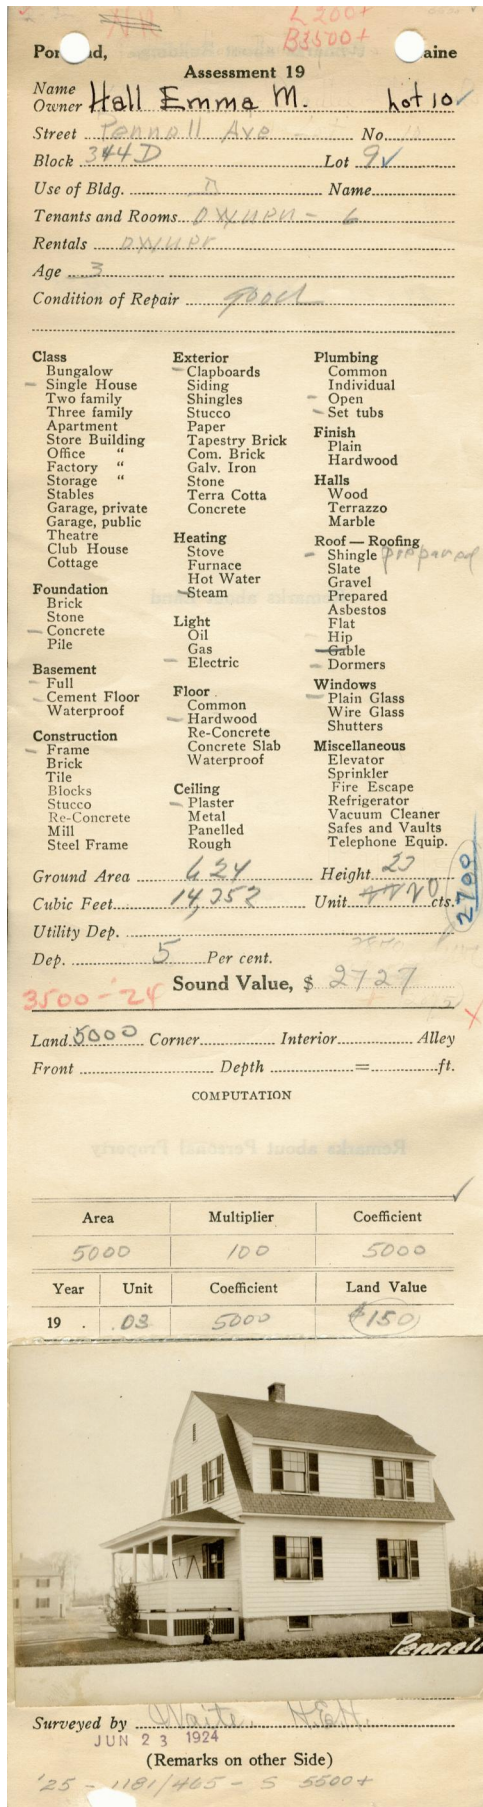 L 200+
B3500+
Portland, Maine
Assessment 19
Name
Owner Hall Emma M. Lot 10 ✓
Street Pennell Ave No.
Block 344D Lot 9 ✓
Use of Bldg. D Name
Tenants and Rooms owner - 6
Rentals owner
Age 3
Condition of Repair good
Class
Bungalow
Single House
Two family
Three family
Apartment
Store Building
Office "
Factory "
Storage "
Stables
Garage, private
Garage, public
Theatre
Club House
Cottage
Foundation
Brick
Stone
Concrete
Pile
Basement
Full
Cement Floor
Waterproof
Construction
Frame
Brick
Tile
Blocks
Stucco
Re-Concrete
Mill
Steel Frame
Exterior
Clapboards
Siding
Shingles
Stucco
Paper
Tapestry Brick
Com. Brick
Galv. Iron
Stone
Terra Cotta
Concrete
Heating
Stove
Furnace
Hot Water
Steam
Light
Oil
Gas
Electric
Floor
Common
Hardwood
Re-Concrete
Concrete Slab
Waterproof
Ceiling
Plaster
Metal
Panelled
Rough
Plumbing
Common
Individual
Open
Set tubs
Finish
Plain
Hardwood
Halls
Wood
Terrazzo
Marble
Roof — Roofing
Shingle prepared
Slate
Gravel
Prepared
Asbestos
Flat
Hip
Gable
Dormers
Windows
Plain Glass
Wire Glass
Shutters
Miscellaneous
Elevator
Sprinkler
Fire Escape
Refrigerator
Vacuum Cleaner
Safes and Vaults
Telephone Equip.
Ground Area 624 Height 23
Cubic Feet 14,352 Unit 20 cts.
2700
Utility Dep.
Dep. 5 Per cent.
Sound Value, $ 2727
3500 - '24
Land 5000 Corner Interior Alley
Front Depth = ft.
COMPUTATION
Area Multiplier Coefficient
5000 100 5000
Year Unit Coefficient Land Value
19 . .03 5000 $150
Pennell
Surveyed by Waite H.E.H.
JUN 23 1924
(Remarks on other Side)
'25 - 1181/465 - S 5500+